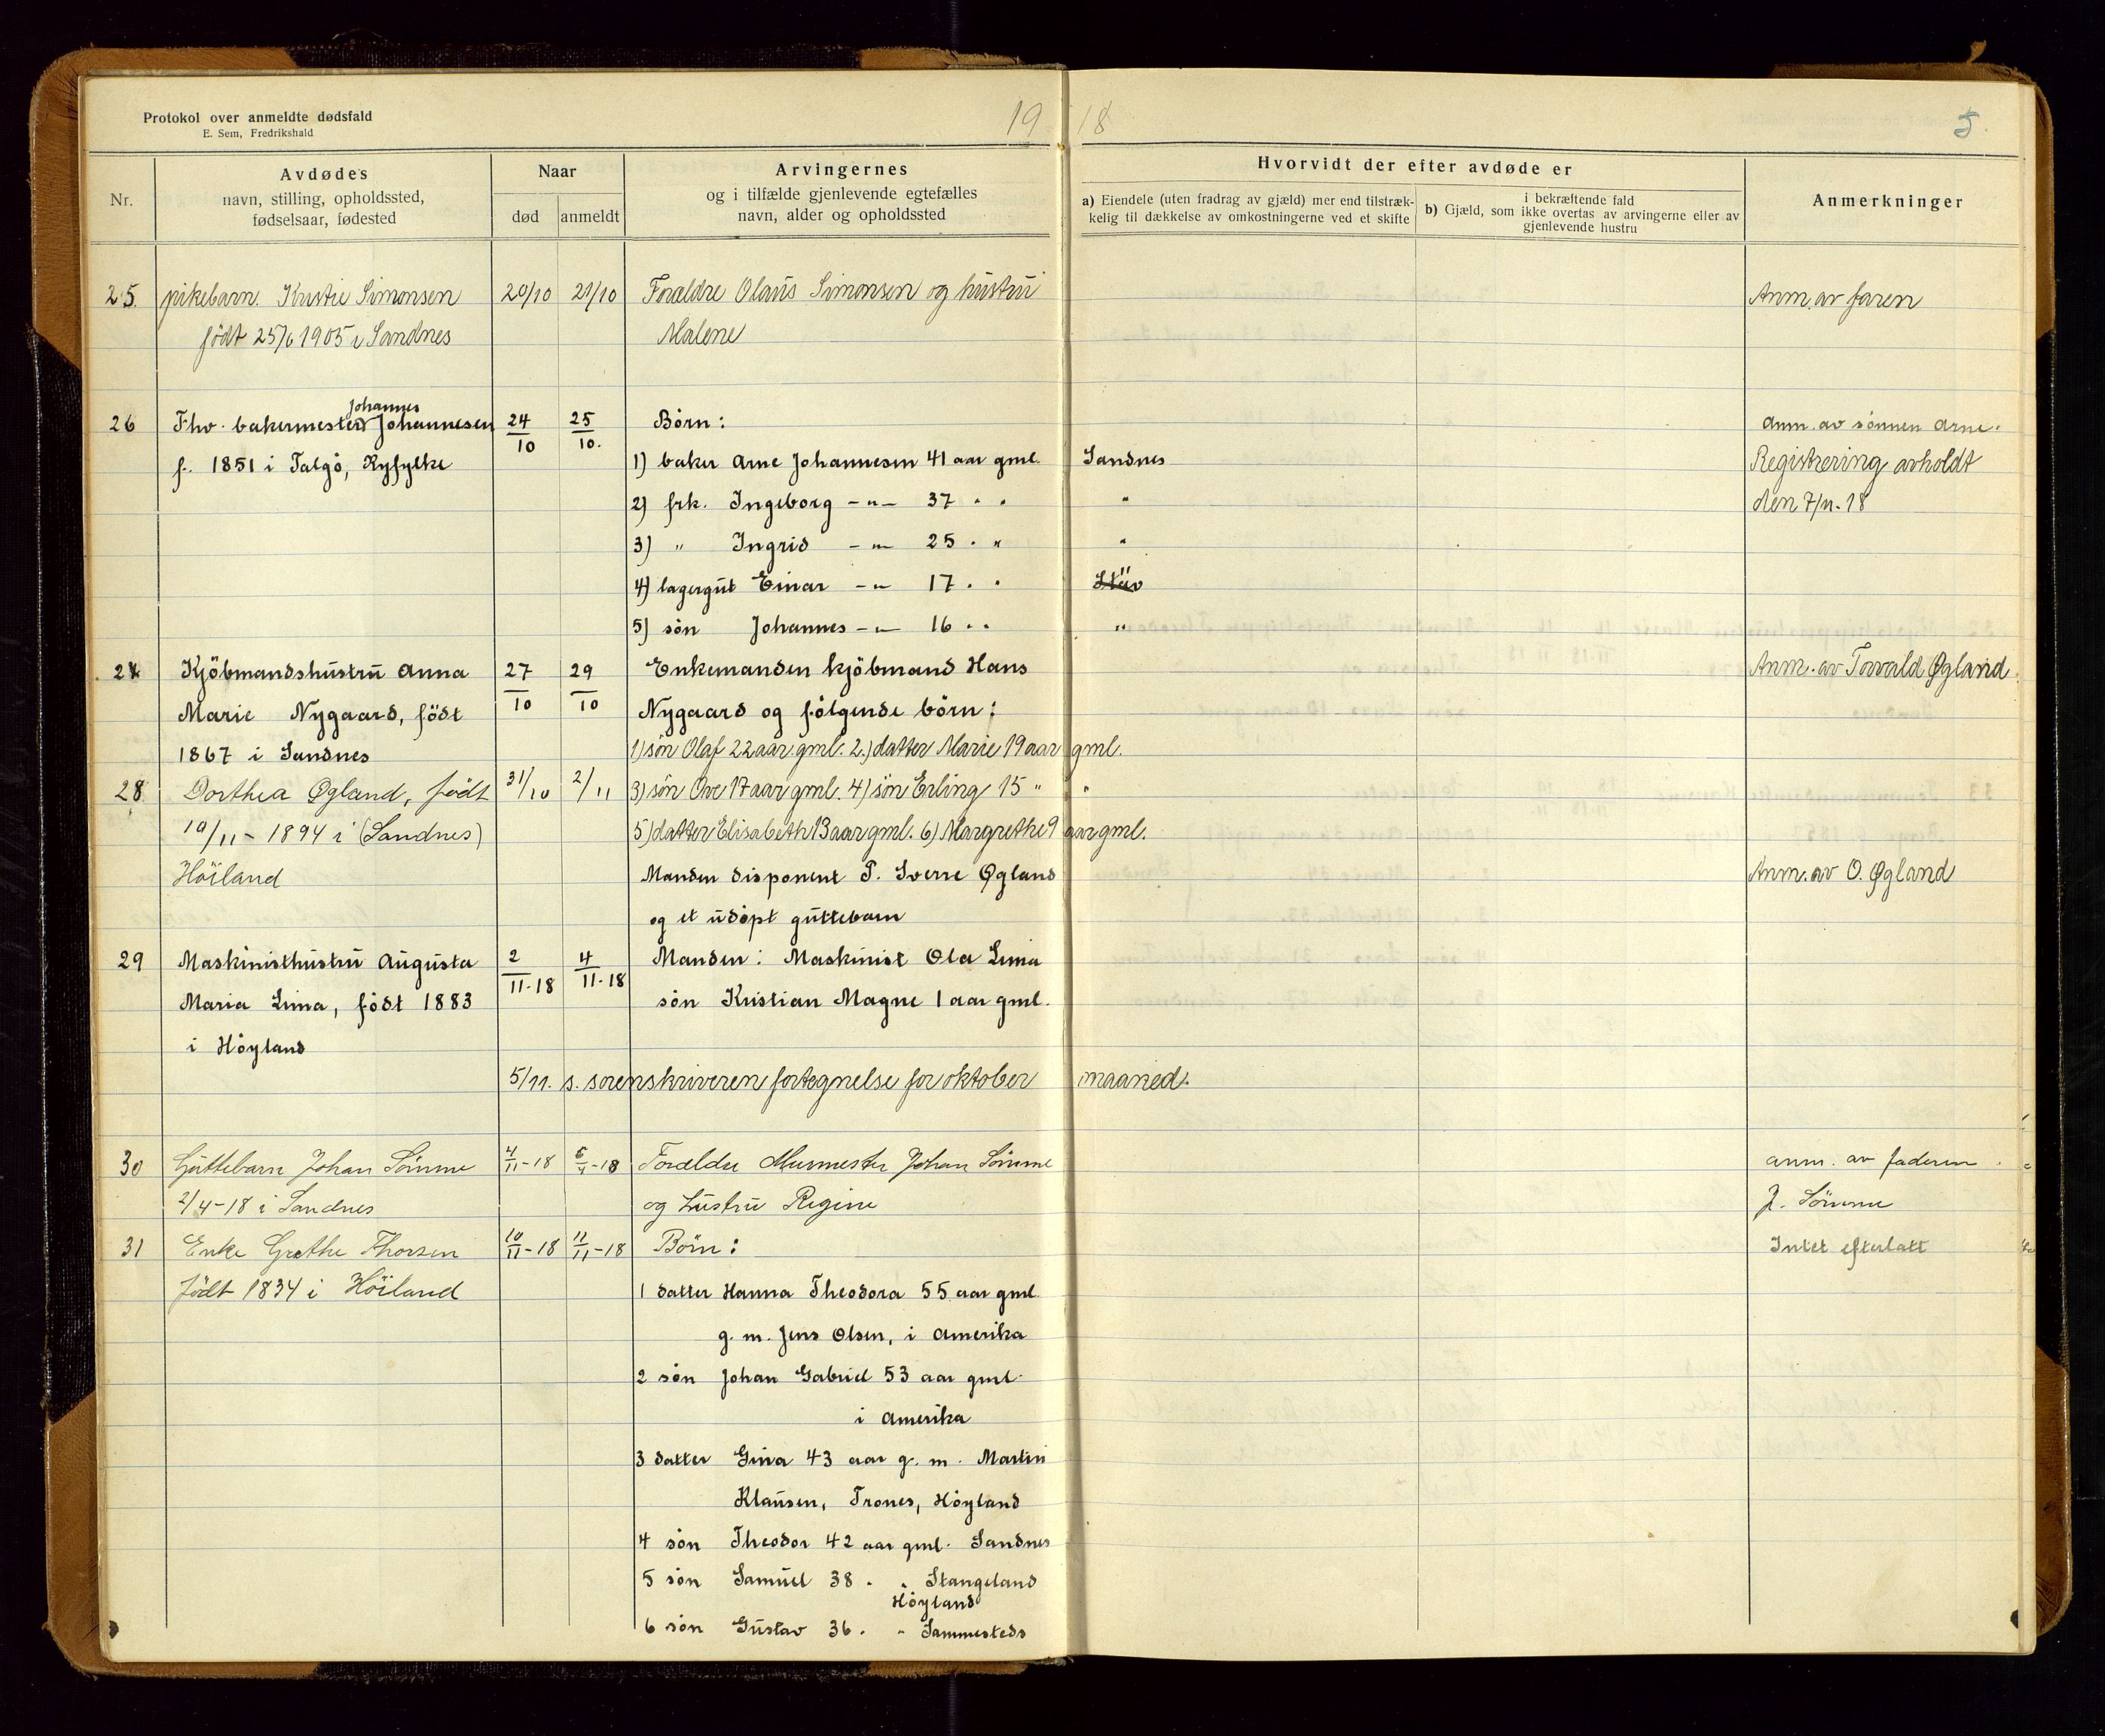 Protokol over anmeldte dødsfald
E. Sem, Fredrikshald
19 18
5.
Nr.
Avdødes
navn, stilling, opholdssted,
fødselsaar, fødested
Naar
død
anmeldt
Arvingernes
og i tilfælde gjenlevende egtefælles
navn, alder og opholdssted
Hvorvidt der efter avdøde er
a) Eiendele (uten fradrag av gjæld) mer end tilstræk-
kelig til dækkelse av omkostningerne ved et skifte
i bekræftende fald
b) Gjæld, som ikke overtas av arvingerne eller av
gjenlevende hustru
Anmerkninger
25. pikebarn. Kristie Simonsen 20/10 21/10 Forældre Olaus Simonsen og hustru Anm. av faren
født 25/6 1905 i Sandnes Malene
Johannes
26 Fhv. bakermester Johannesen 24/10 25/10. Børn: Anm. av sønnen Arne.
f. 1851 i Talgö, Ryfylke 1) baker Arne Johannesen 41 aar gml. Sandnes Registrering avholdt
2) frk. Ingeborg -"- 37 " " " den 7/11-18
3) " Ingrid -"- 25 " " "
4) lagergut Einar -"- 17 " " Stav "
5) søn Johannes -"- 16 " " "
27 Kjöbmandshustru Anna 27/10 29/10 Enkemanden kjöbmand Hans Anm. av Torvald Øgland.
Marie Nygaard, födt Nygaard og følgende börn:
1867 i Sandnes 1) søn Olaf 22 aar gml. 2.) datter Marie 19 aar gml.
28 Dorthea Øgland, födt 31/10 2/11 3) søn Ove 17 aar gml. 4) søn Erling 15 " "
19/11-1894 i (Sandnes) 5) datter Elisabeth 13 aar gml. 6) Margrethe 9 aar gml.
Höiland Manden disponent P. Sverre Øgland Anm. av O. Øgland
og et udøpt guttebarn
29 Maskinisthustru Augusta 2/11-18 4/11-18 Manden: Maskinist Ola Lima
Maria Lima, födt 1883 søn Kristian Magne 1 aar gml.
i Höyland
5/11. s. sorenskriveren fortegnelse for oktober maaned.
30 Guttebarn Johan Sömme 4/11-18 5/11-18 Forældre Murmester Johan Sömme anm. av faderen
2/4-18 i Sandnes og hustru Regine J. Sömme
31 Enke Grethe Thorsen 10/11-18 11/11-18 Börn: Intet efterlatt
födt 1834 i Höiland 1 datter Hanna Theodora 55 aar gml.
g. m. Jens Olsen, i Amerika
2 søn Johan Gabriel 53 aar gml.
i Amerika
3 datter Gina 43 aar g. m. Martin
Klausen, Trones, Höyland
4 søn Theodor 42 aar gml. Sandnes
5 søn Samuel 38 " " Stangeland
Höyland
6 søn Gustav 36 " " Sammesteds